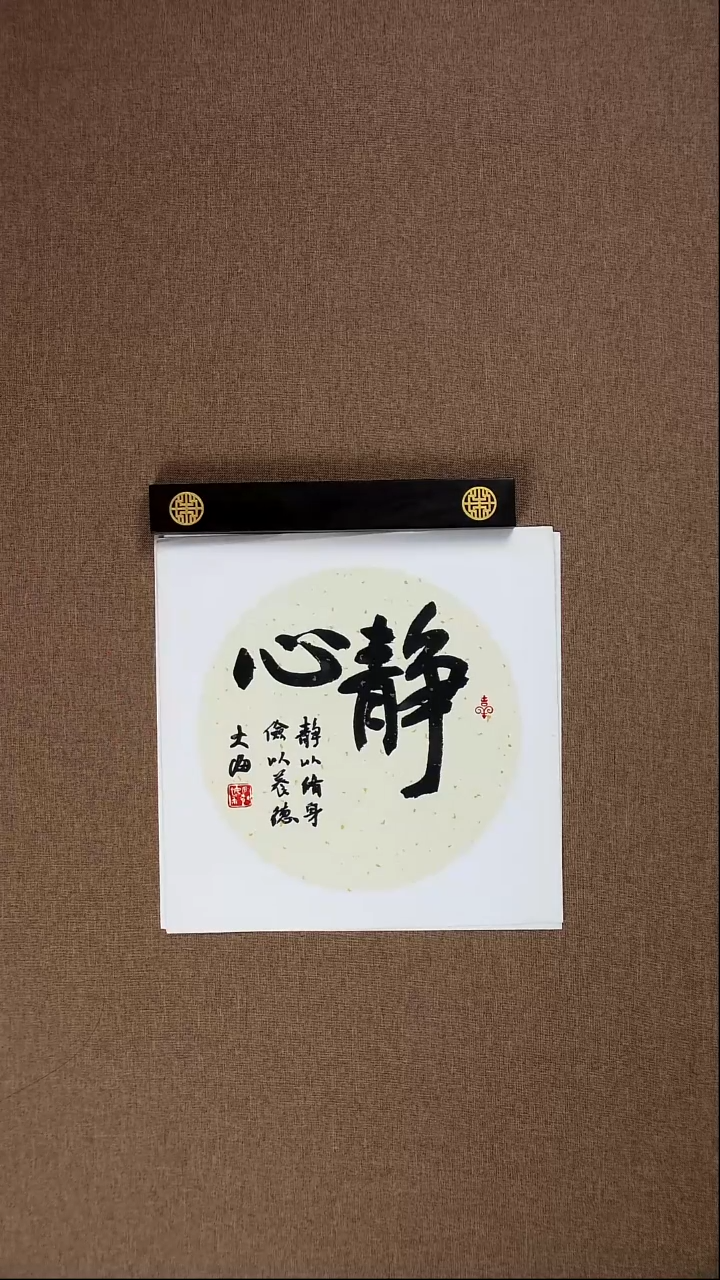 静心
静以修身
俭以养德
大海